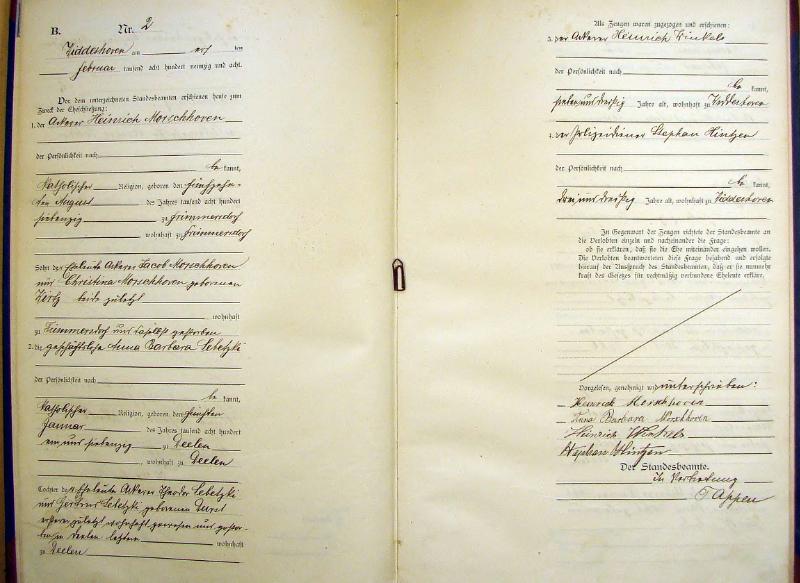 B. Nr. 2
Hiddeshoven am elf ten
Februar tausend acht hundert neunzig und acht.
Vor dem unterzeichneten Standesbeamten erschienen heute zum
Zweck der Eheschließung:
1. der Ackerer Heinrich Morschhoven
der Persönlichkeit nach
be kannt,
katholischer Religion, geboren den fünfzehn-
ten August des Jahres tausend acht hundert
siebenzig zu Frimmersdorf
, wohnhaft zu Frimmersdorf
Sohn der Eheleute Ackerer Jacob Morschhoven
und Christina Morschhoven geborenen
beide zuletzt
wohnhaft
zu Frimmersdorf und daselbst gestorben
2. die geschäftslose Anna Barbara
der Persönlichkeit nach
be kannt,
katholischer Religion, geboren den fünften
Januar des Jahres tausend acht hundert
ein und siebenzig zu Deelen
, wohnhaft zu Deelen
Tochter der Eheleute Ackerer Theodor
und Gertrud geborenen
zuletzt wohnhaft gewesen und gestor-
ben in Deelen letztere wohnhaft
zu Deelen
Als Zeugen waren zugezogen und erschienen:
3. der Ackerer Heinrich Winkels
der Persönlichkeit nach
be kannt,
sieben und dreißig Jahre alt, wohnhaft zu Hiddeshoven
4. der Polizeidiener Stephan Hintzen
der Persönlichkeit nach
be kannt,
drei und dreißig Jahre alt, wohnhaft zu Hiddeshoven
In Gegenwart der Zeugen richtete der Standesbeamte an
die Verlobten einzeln und nacheinander die Frage:
ob sie erklären, daß sie die Ehe miteinander eingehen wollen.
Die Verlobten beantworteten diese Frage bejahend und erfolgte
hierauf der Ausspruch des Standesbeamten, daß er sie nunmehr
kraft des Gesetzes für rechtmäßig verbundene Eheleute erkläre.
Vorgelesen, genehmigt und unterschrieben:
Heinrich Morschhoven
Anna Barbara Morschhoven
Heinrich Winkels
Stephan Hintzen
Der Standesbeamte.
In Vertretung
Tappen